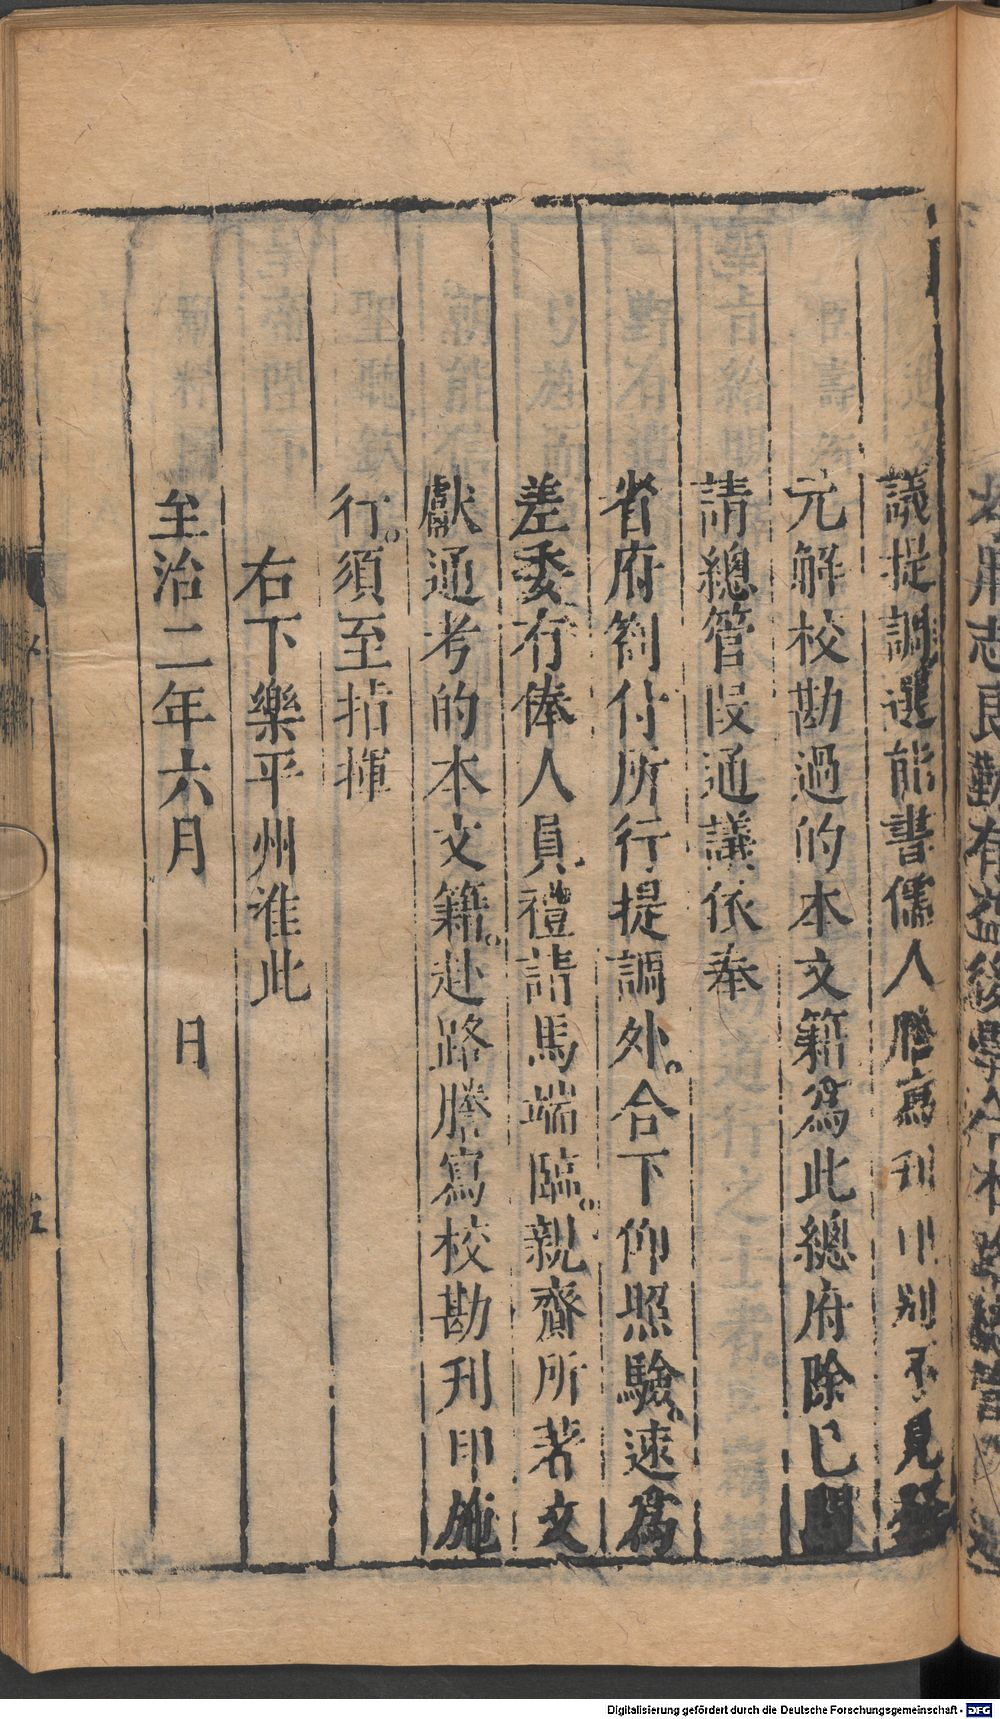 議提調選能書儒人謄寫刊印別不見發
元解校勘過的本文籍為此總府除已關
請總管段通議依奉
省府劄付所行提調外。合下仰照驗。速為
差委有俸人員。禮請馬端臨。親齎所著文
獻通考的本文籍。赴路謄寫校勘刊印施
行。須至指揮
右下樂平州准此
至治二年六月 日
Digitalisierung gefördert durch die Deutsche Forschungsgemeinschaft - DFG